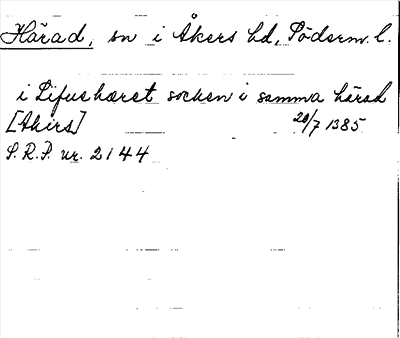 Härad, sn i Åkers hd, Söderm. l.
i Lifushæret socken i samma härad
[Akirs] 20/7 1385
S.R.P. nr. 2144